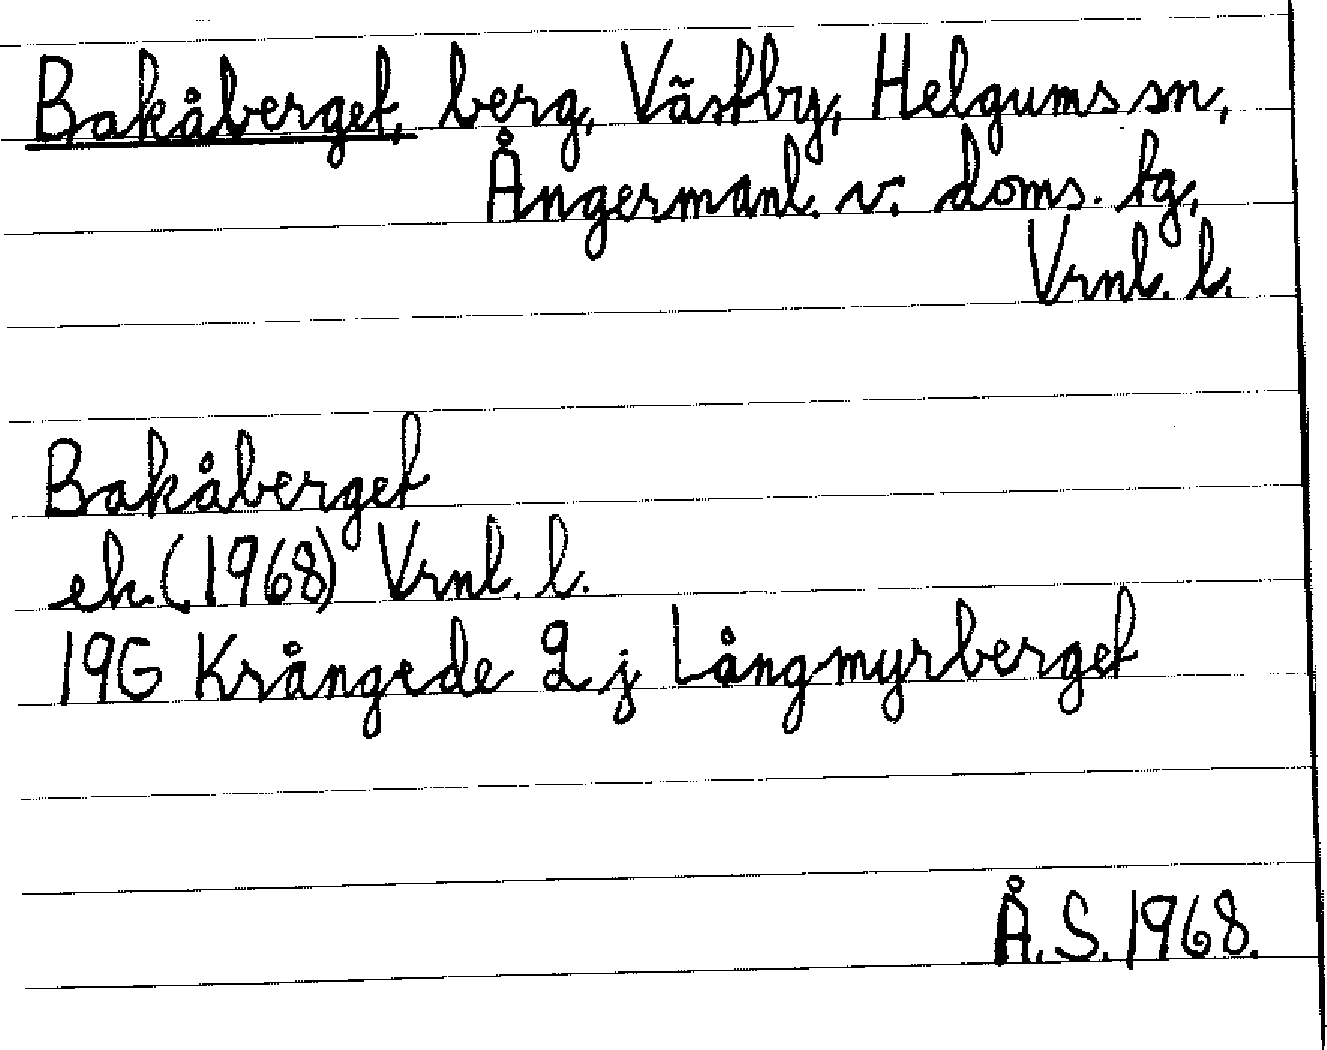 Bakåberget, berg, Västby, Helgums sn,
Ångermanl. v. doms. tg,
Vrnl. l.
Bakåberget
ek. (1968) Vrnl. l.
19G Krångede 2 j Långmyrberget
Å. S. 1968.